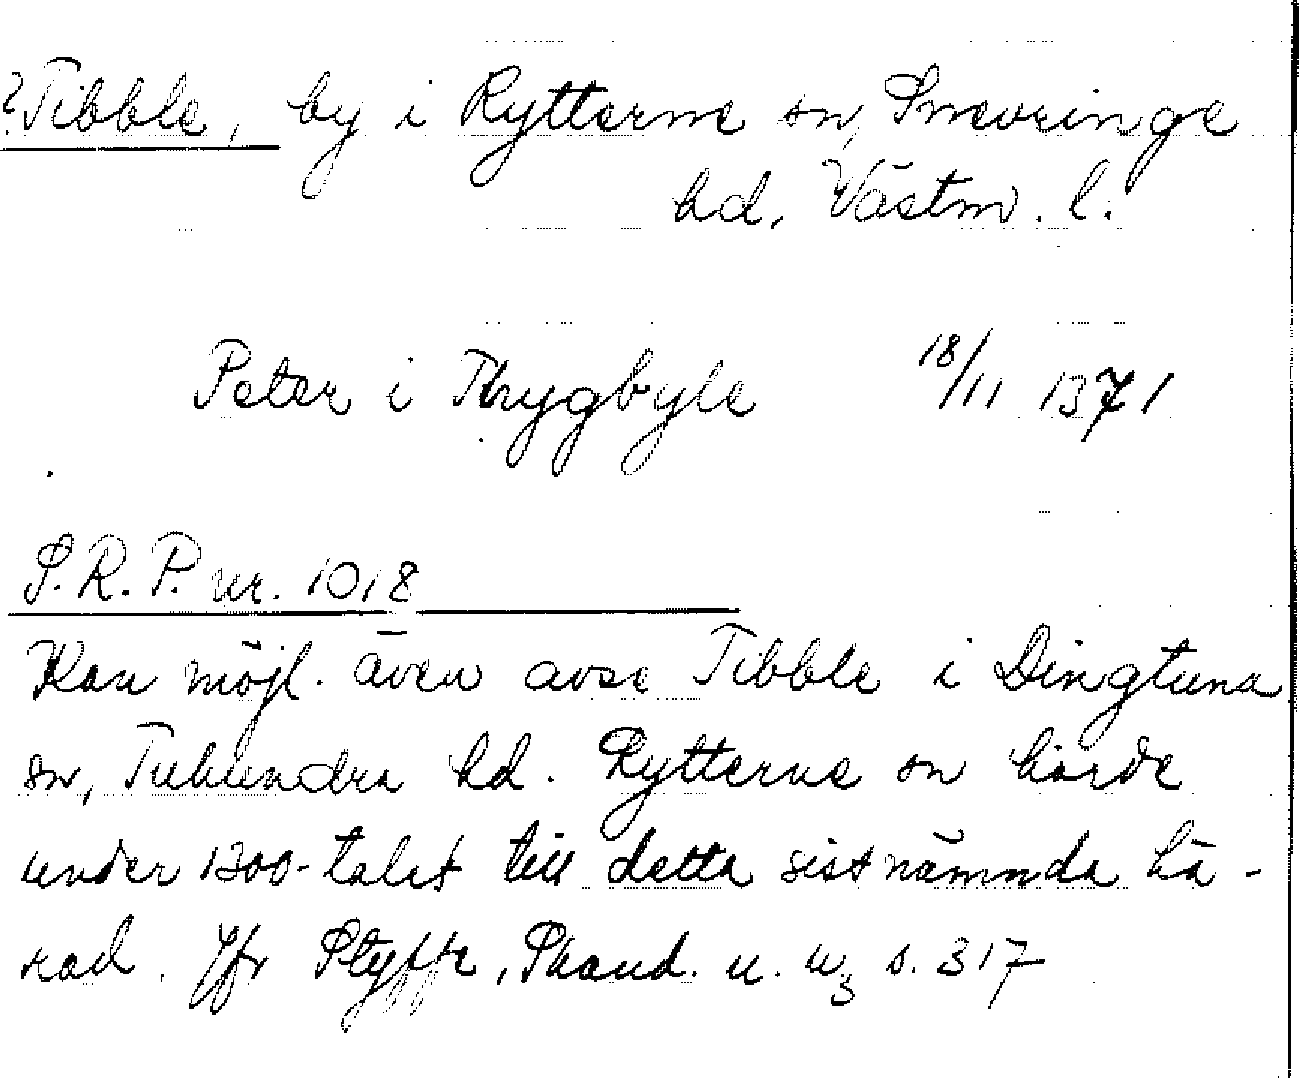 ? Tibble, by i Rytterne sn, Snevringe
hd, Västm. l.
Peter i Thrygbyle 18/11 1371
S.R.P. nr. 1018
Kan möjl. även avse Tibble i Dingtuna
sn, Tuhundra hd. Rytterne sn hörde
under 1300-talet till detta sistnämnda hä-
rad. Jfr Styffe, Skand. u. u₃ s. 317